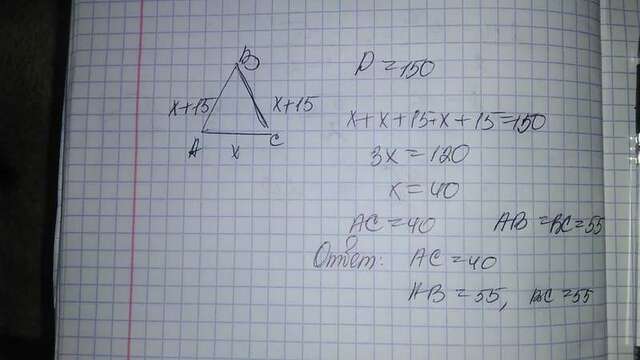 B
P = 150
x+15
x+15
x+x+15+x+15=150
A
x
C
3x = 120
x = 40
AC = 40 AB = BC = 55
Ответ: AC = 40
AB = 55, BC = 55